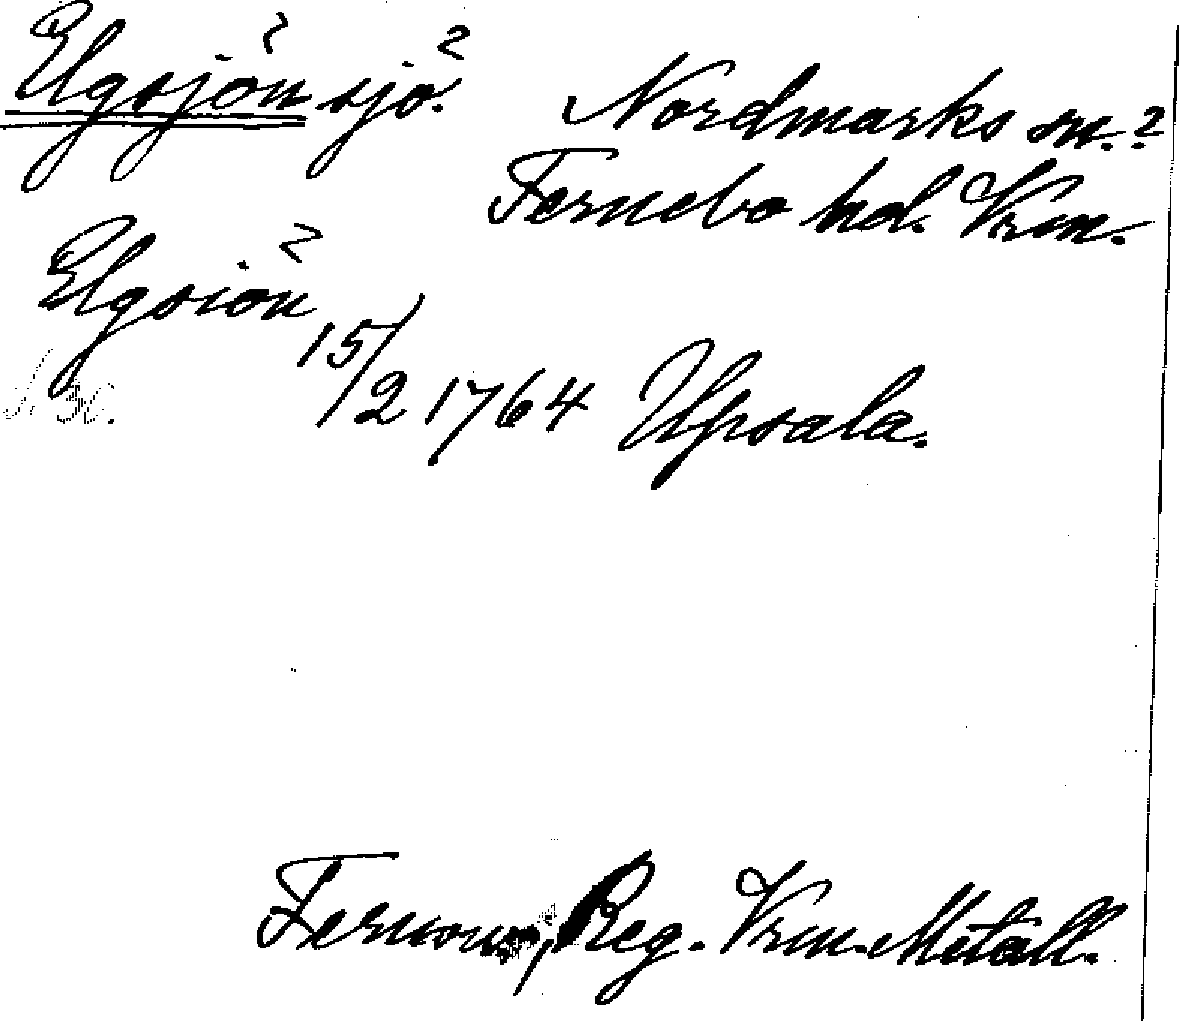 Elgsjön sjö.? Nordmarks sn.?
Fernebo hd. Vrm.
Elgsiön
15/2 1764 Upsala.
Fernow, Reg. Vrm. Metall.